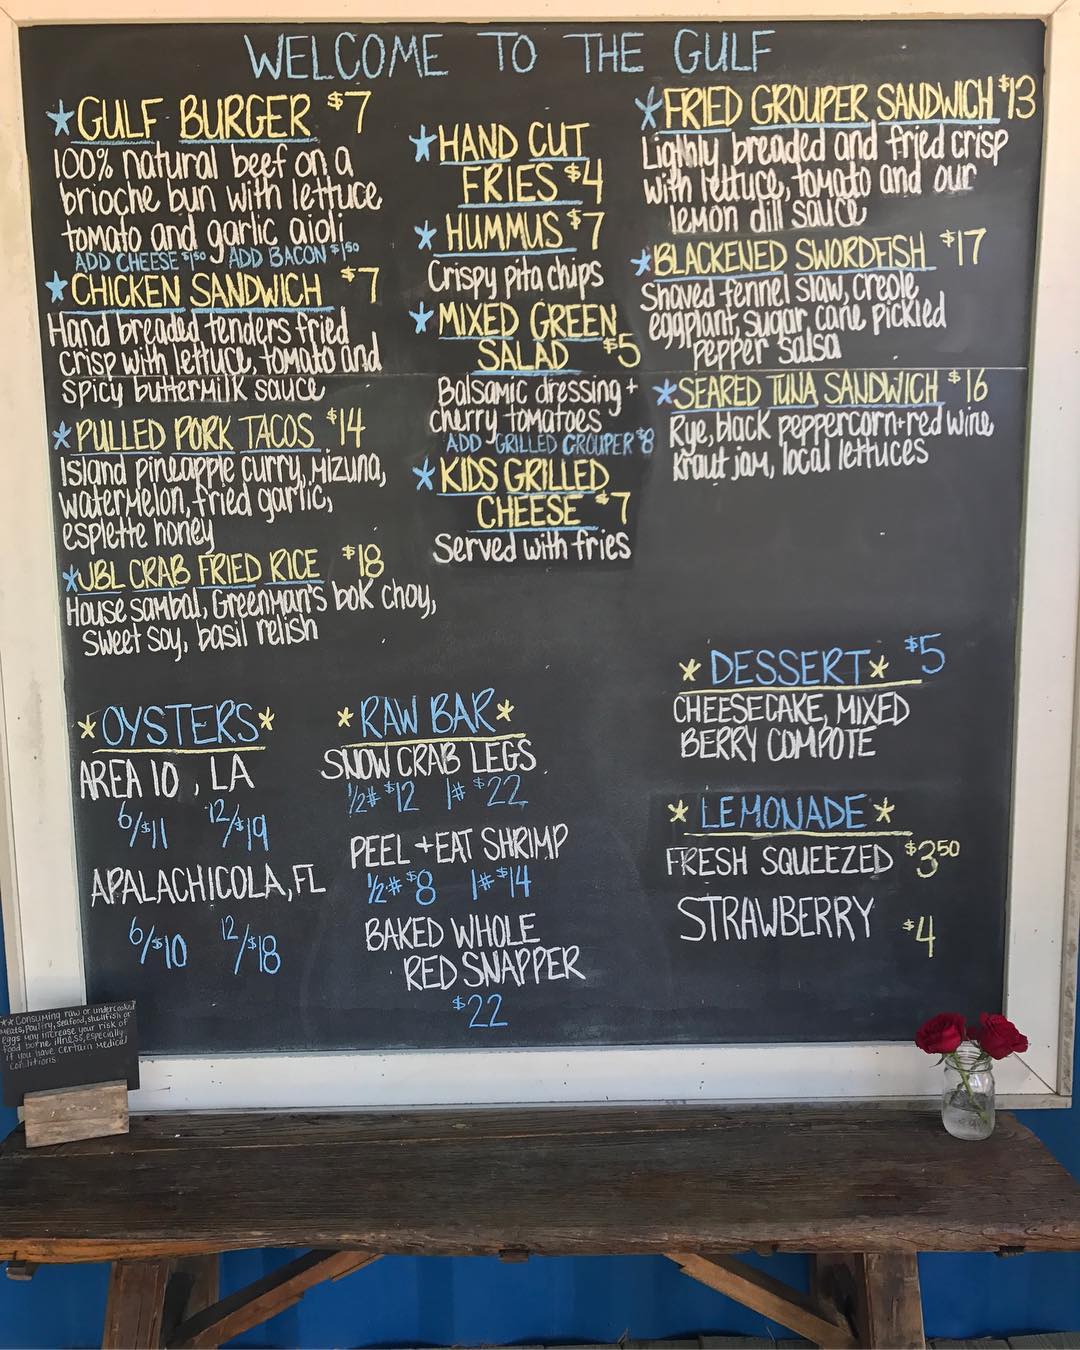 WELCOME TO THE GULF
*GULF BURGER $7
100% natural beef on a
brioche bun with lettuce
tomato and garlic aioli
ADD CHEESE $1.50 ADD BACON $1.50
*CHICKEN SANDWICH $7
Hand breaded tenders fried
crisp with lettuce, tomato and
spicy buttermilk sauce
*PULLED PORK TACOS $14
Island pineapple curry, mizuna,
watermelon, fried garlic,
esplette honey
*JBL CRAB FRIED RICE $18
House sambal, Greenman's bok choy,
sweet soy, basil relish
*HAND CUT
FRIES $4
*HUMMUS $7
Crispy pita chips
*MIXED GREEN
SALAD $5
Balsamic dressing +
cherry tomatoes
ADD GRILLED GROUPER $8
*KIDS GRILLED
CHEESE $7
Served with fries
*FRIED GROUPER SANDWICH $13
Lightly breaded and fried crisp
with lettuce, tomato and our
lemon dill sauce
*BLACKENED SWORDFISH $17
Shaved fennel slaw, creole
eggplant, sugar cane pickled
pepper salsa
*SEARED TUNA SANDWICH $16
Rye, black peppercorn+red wine
kraut jam, local lettuces
*OYSTERS*
AREA 10, LA
6/$11 12/$19
APALACHICOLA, FL
6/$10 12/$18
*RAW BAR*
SNOW CRAB LEGS
1/2# $12 1# $22
PEEL + EAT SHRIMP
1/2# $8 1# $14
BAKED WHOLE
RED SNAPPER
$22
*DESSERT* $5
CHEESECAKE, MIXED
BERRY COMPOTE
*LEMONADE*
FRESH SQUEEZED $3.50
STRAWBERRY $4
**Consuming raw or undercooked
meats, poultry, seafood, shellfish or
eggs may increase your risk of
food borne illness, especially
if you have certain medical
conditions